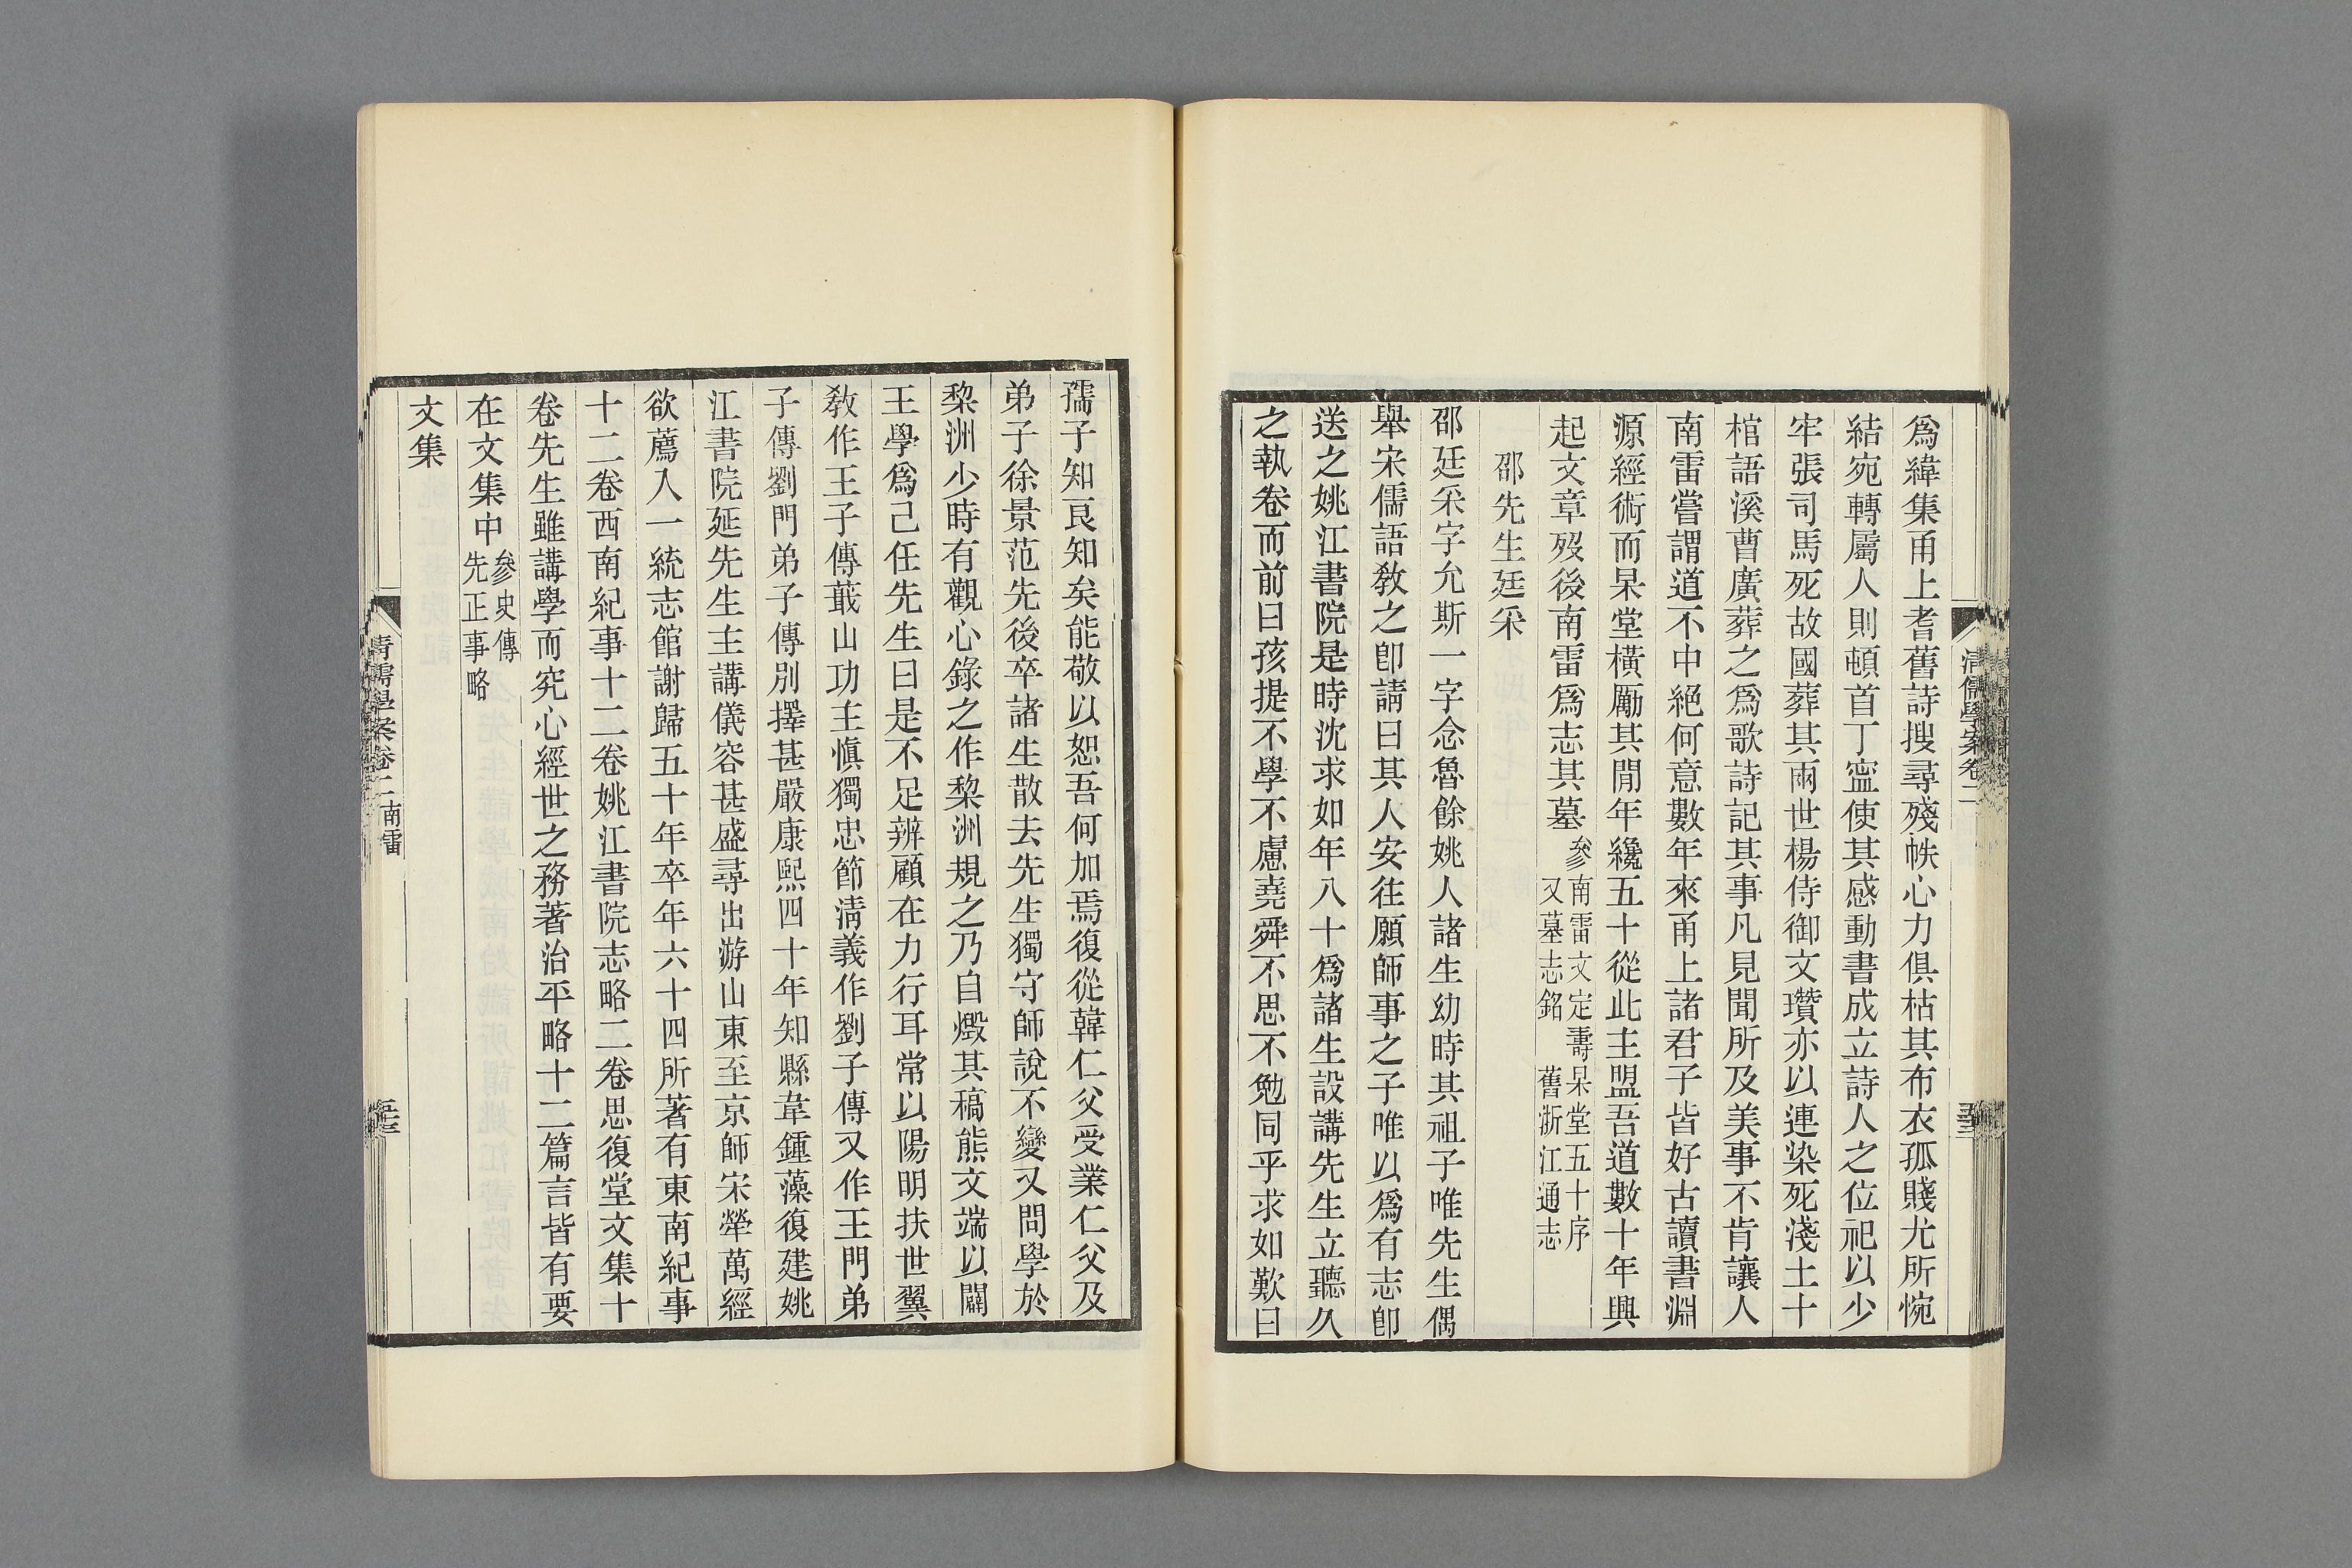 爲緯集甬上耆舊詩搜尋殘帙心力俱枯其布衣孤賤尤所惋
結宛轉屬人則頓首丁寍使其感動書成立詩人之位祀以少
牢張司馬死故國葬其兩世楊侍御文瓚亦以連染死淺土十
棺語溪曹廣葬之爲歌詩記其事凡見聞所及美事不肯讓人
南雷嘗謂道不中絕何意數年來甬上諸君子皆好古讀書淵
源經術而杲堂橫厲其閒年纔五十從此主盟吾道數十年興
起文章歿後南雷爲志其墓參南雷文定壽杲堂五十序
又墓志銘　舊浙江通志
邵先生廷采
邵廷采字允斯一字念魯餘姚人諸生幼時其祖子唯先生偶
舉宋儒語敎之卽請曰其人安往願師事之子唯以爲有志卽
送之姚江書院是時沈求如年八十爲諸生設講先生立聽久
之執卷而前曰孩提不學不慮堯舜不思不勉同乎求如歎曰
清儒學案卷二
孺子知良知矣能敬以恕吾何加焉復從韓仁父受業仁父及
弟子徐景范先後卒諸生散去先生獨守師說不變又問學於
棃洲少時有觀心錄之作棃洲規之乃自燬其稿熊文端以闢
王學爲己任先生曰是不足辨顧在力行耳常以陽明扶世翼
敎作王子傳蕺山功主愼獨忠節淸義作劉子傳又作王門弟
子傳劉門弟子傳別擇甚嚴康熙四十年知縣韋鍾藻復建姚
江書院延先生主講儀容甚盛尋出游山東至京師宋犖萬經
欲薦入一統志館謝歸五十年卒年六十四所著有東南紀事
十二卷西南紀事十二卷姚江書院志略二卷思復堂文集十
卷先生雖講學而究心經世之務著治平略十二篇言皆有要
在文集中參史傳
先正事略
文集
清儒學案卷二　南雷